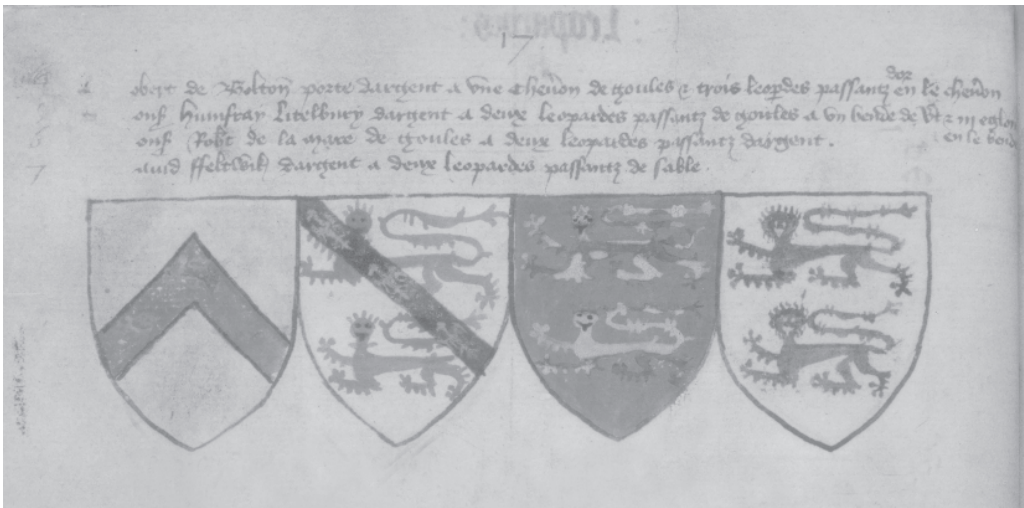 17
obert de Bolton porte dargent a vne cheuon de goules & trois leopdes passantz dor en le cheuon
ons humfray Litelbury dargent a deux leopardes passantz de goules a vn bende de Vt & iii egles en le bend
ons Robt de la mare de goules a deux leopardes passantz dargent.
auid ffeltwik dargent a deux leopardes passantz de sable.